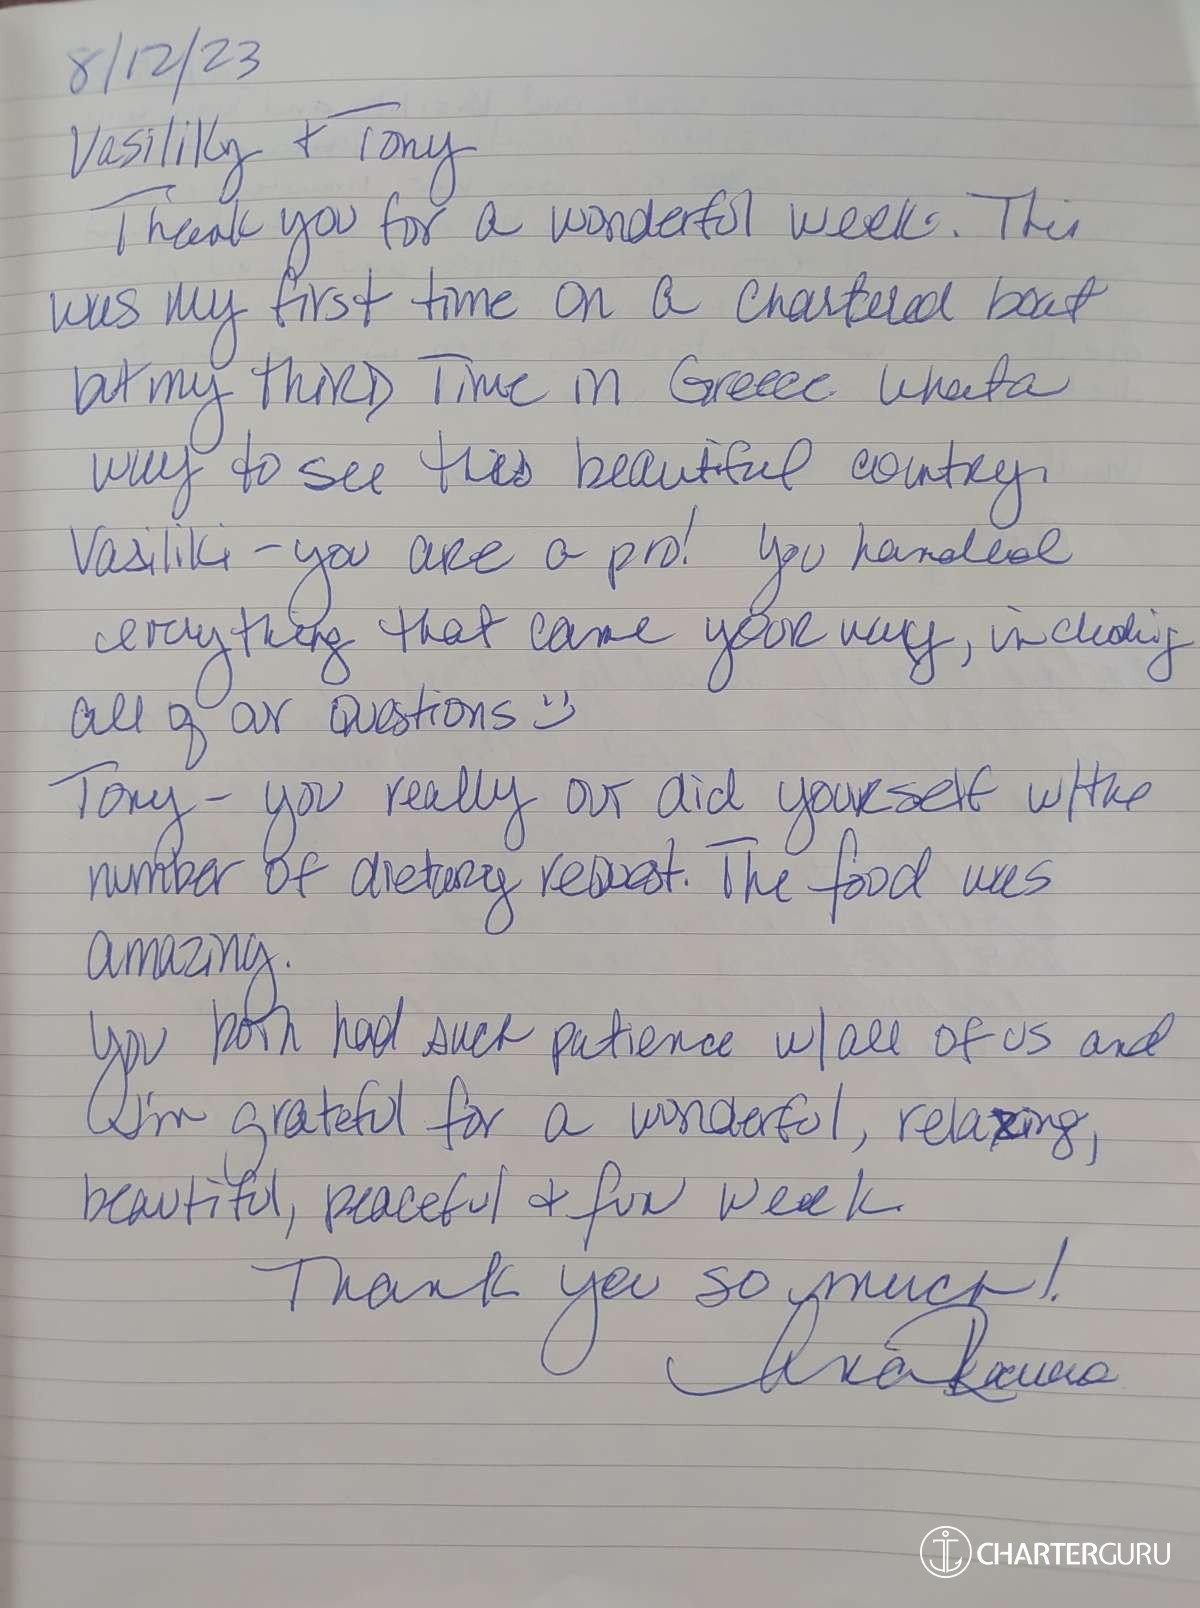 8/12/23
Vasiliky + Tony
Thank you for a wonderful week. This
was my first time on a chartered boat
but my THIRD Time in Greece. What a
way to see this beautiful country.
Vasiliki - you are a pro! You handled
everything that came your way, including
all of our questions :)
Tony - you really out did yourself w/the
number of dietary request. The food was
amazing.
You both had such patience w/all of us and
I'm grateful for a wonderful, relaxing,
beautiful, peaceful + fun week.
Thank you so much!
CHARTERGURU